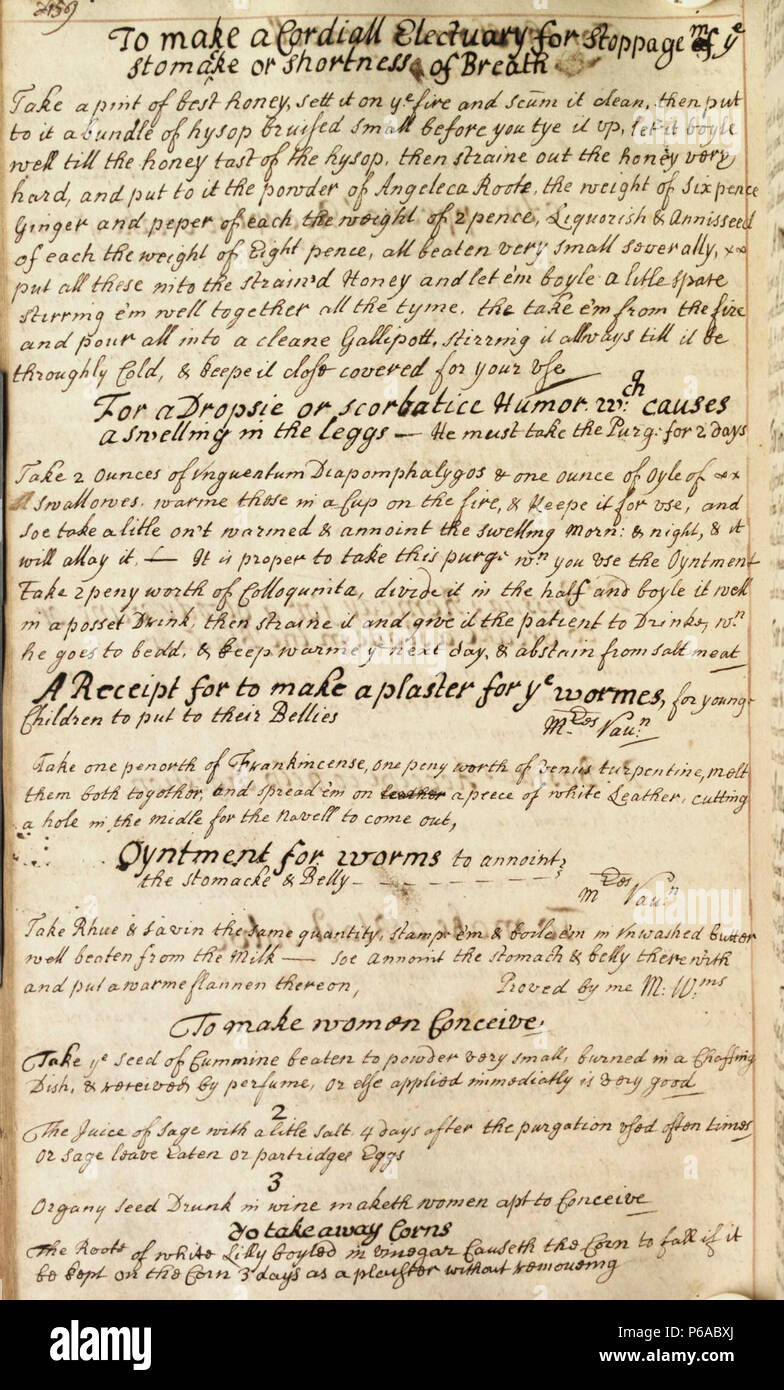 159
To make a Cordiall Electuary for Stoppage of yᵉ
stomake or shortness of Breath
Take a pint of best honey, sett it on yᵉ fire and scum it clean, then put
to it a bundle of hysop bruised small before you tye it up, let it boyle
well till the honey tast of the hysop, then straine out the honey very
hard, and put to it the powder of Angeleca Roots, the weight of six pence
Ginger and peper of each the weight of 2 pence, Liquorish & Annisseed
of each the weight of Eight pence, all beaten very small severally,
put all these into the strain'd Honey and let em boyle a litle space
stirring e'm well together all the tyme, the take e'm from the fire
and pour all into a cleane Gallipott, stirring it allways till it be
throughly Cold, & keepe it close covered for your Use
For a Dropsie or scorbatice Humor. wᶜʰ causes
a swelling in the leggs — He must take the Purg: for 2 days
Take 2 Ounces of Unguentum Diapomphalygos & one ounce of Oyle of
swallowes. warme these in a Cup on the fire, & Keepe it for use, and
soe take a litle on't warmed & annoint the swelling Morn: & night, & it
will allay it. — It is proper to take this purge wⁿ you Use the Oyntment
Take 2 peny worth of Colloqunita, divide it in the half and boyle it well
in a posset Drink, then straine it and give it the patient to Drinke, wⁿ
he goes to bedd, & keep warme yᵉ next day, & abstain from salt meat
A Receipt for to make a plaster for yᵉ wormes, for young
Children to put to their Bellies
Vauⁿ
Take one penorth of Frankincense, one peny worth of venus turpentine, melt
them both together, and spread e'm on leather a peece of white Leather, cutting
a hole in the midle for the Navell to come out,
Oyntment for worms to annoint
the stomacke & Belly
Vauⁿ
Take Rhue & savin the same quantity, stamp e'm & boile e'm in Unwashed butter
well beaten from the Milk — soe Annoint the stomach & belly therewith
and put a warme flannen thereon, Proved by me M: Wᵐˢ
To make women Conceive
Take yᵉ seed of Cummine beaten to powder very small, burned in a Chaffing
Dish, & received by perfume, or else applied immediatly is very good
2
The Juice of sage with a litle salt 4 days after the purgation used often times
or sage leave Eaten or partridges Eggs
3
Organy seed Drunk in wine maketh women apt to Conceive
To take away Corns
The Roots of white Lilly boyled in vinegar Causeth the Corn to fall if it
be kept on the Corn 3 days as a plaister without removeing
alamy
alamy
Image ID: P6ABXJ
www.alamy.com